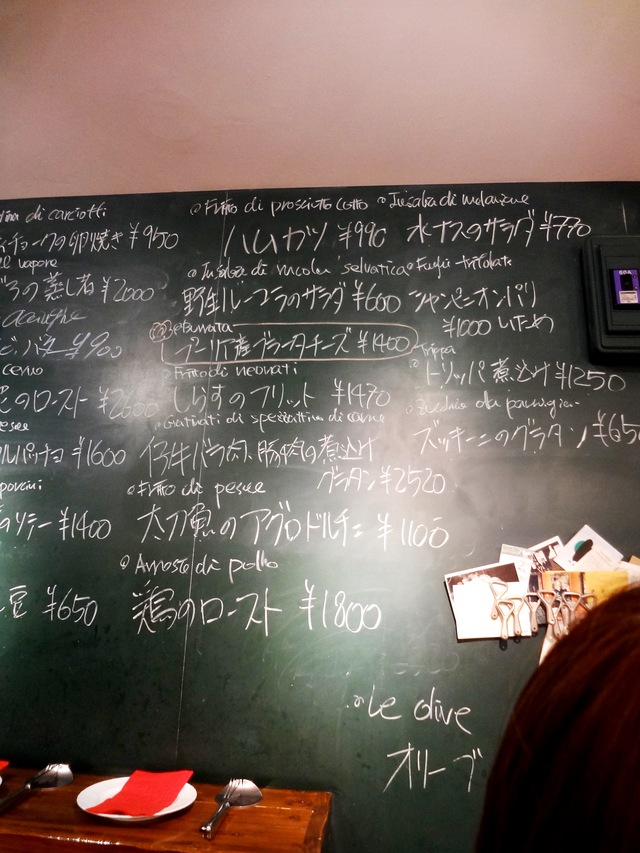 di carciotti
チョークの卵焼き ¥950
al vapore
の蒸し煮 ¥2000
¥900
のロースト ¥2600
ルパッチョ ¥1600
porcini
のソテー ¥1400
豆 ¥650
Fritto di prosciutto cotto
ハムカツ ¥990
Insalata di rucola selvatica
野生ルーコラのサラダ ¥600
Burrata
プーリア産ブラータチーズ ¥1400
Fritto di neonati
しらすのフリット ¥1470
Gratinati di spezzattino di carne
仔牛バラ肉、豚肉の煮込み
グラタン ¥2520
Fritto di pesce
太刀魚のアグロドルチェ ¥1100
Arrosto di pollo
鶏のロースト ¥1800
Insalata di melanzane
水ナスのサラダ ¥770
Funghi trifolati
シャンピニオンパリ
¥1000 いため
Trippa
トリッパ煮込み ¥1250
ズッキーニのグラタン ¥650
Le olive
オリーブ